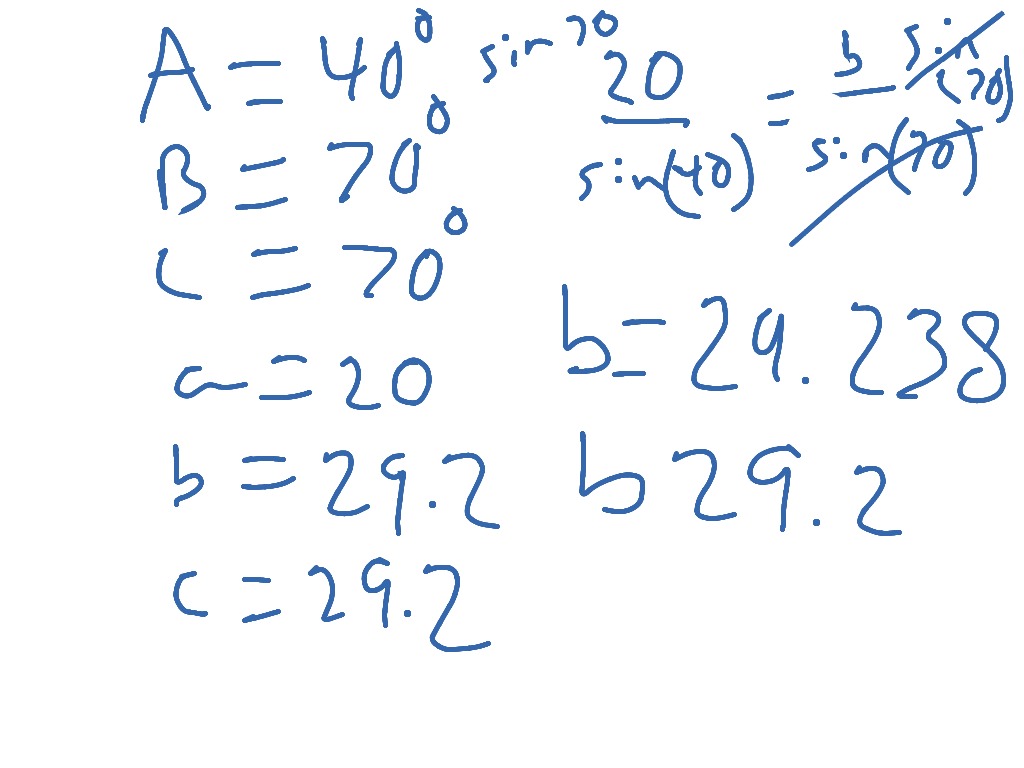 A = 40°
B = 70°
C = 70°
a = 20
b = 29.2
c = 29.2
sin 70 20 = b sin(70)
sin(40) sin(70)
b = 29.238
b 29.2